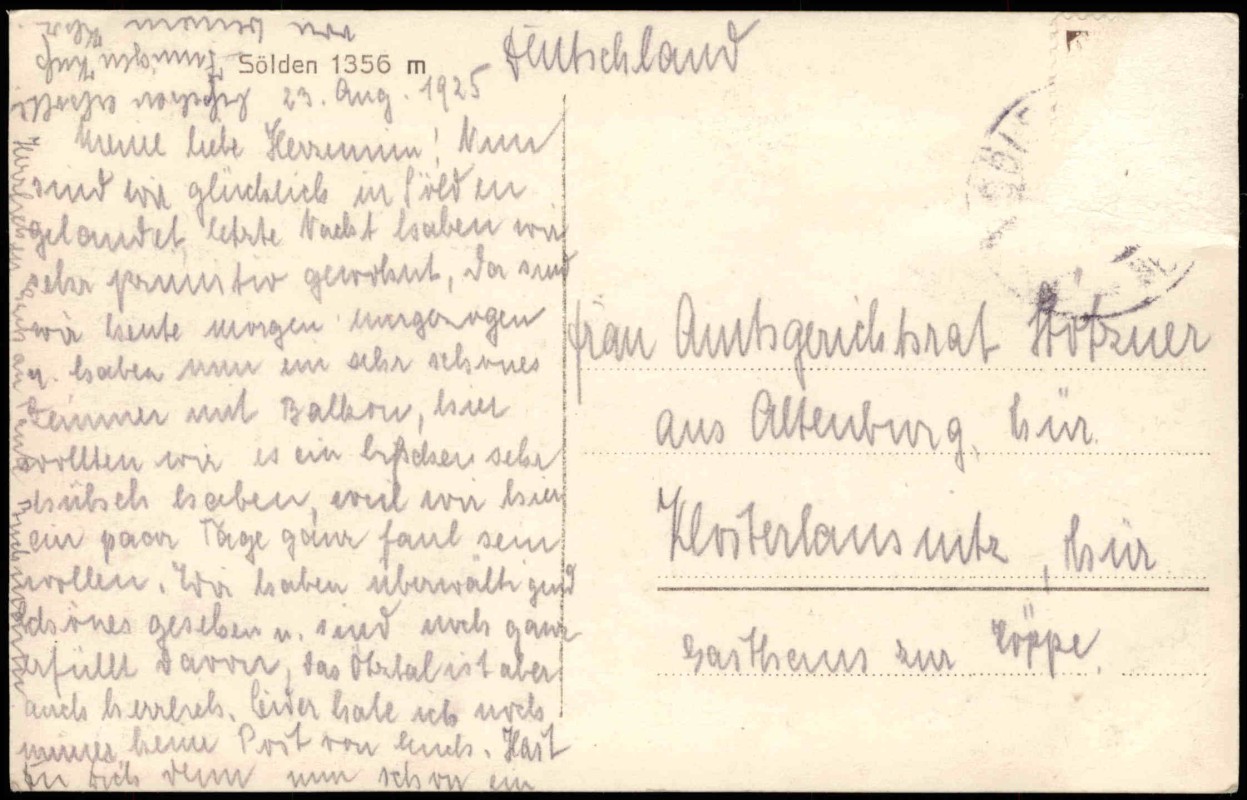 Sölden 1356 m
23. Aug. 1925
Meine liebe Herzemimi! Nun
sind wir glücklich in Sölden
gelandet, letzte Nacht haben wir
sehr primitiv gewohnt, da sind
wir heute morgen
u. haben nun ein sehr schönes
Zimmer mit Balkon, hier
wollten wir es ein bischen sehr
hübsch haben, weil wir hier
ein paar Tage ganz faul sein
wollen. Wir haben überwältigend
schönes gesehen u. sind noch ganz
erfüllt davon, das Ötztal ist aber
auch herrlich. Leider habe ich noch
immer keine Post von Euch. Hast
Du Dich denn nun schon ein
Deutschland
Frau Amtsgerichtsrat Stötzner
aus Altenburg, Thür.
Klosterlausnitz, Thür
Gasthaus zur Köppe.